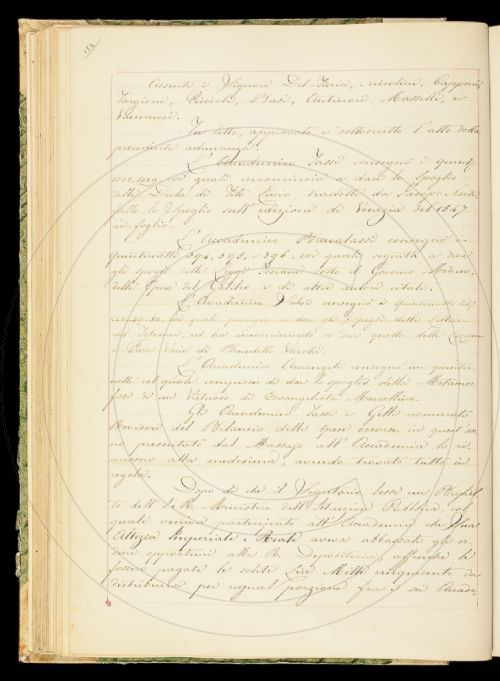 Assenti i Signori Del Furia, Niccolini, Capponi,
Targioni, Piccioli, Basi, Antinori, Masselli, e
Vannucci.
Fu letto, approvato e sottoscritto l'atto della
precedente adunanza.
L'Accademico Tassi consegnò i quinti
coi quali incomincia a dare lo Spoglio
delle Deche di Tito Livio, tradotte da Jacopo Nardi
fatto lo Spoglio sull'edizione di Venezia del 1547
in foglio.
L'Accademico Brucalassi consegnò i
quintinetti 394, 395, e 396, coi quali seguita a dare
gli spogli delle Leggi Toscane sotto il Governo Mediceo,
delle Opere del Galileo e di altri autori citati.
L'Accademico Valeri consegnò i quintinetti
coi quali prosegue a dare gli Spogli delle Lettere
ed ha incominciato a dar quello delle
di Benedetto Varchi.
L'Accademico Arcangeli consegnò un quinti
netto col quale compisce di dar lo spoglio della Metamor
fosi di un Virtuoso di Evangelista Marcellino.
Gli Accademici Tassi e Gelli nominati
Revisori del Bilancio delle spese occorse in quest'an
no presentato dal Massajo all'Accademia lo ri
messero alla medesima, avendo trovato tutto in
regola.
Dopo di che il Segretario lesse un Bigliet
to dell'I. e R. Ministero dell'Istruzione Pubblica, col
quale veniva partecipato all'Accademia che Sua
Altezza Imperiale e Reale aveva abbassati gli or
dini opportuni alla R. Depositeria, affinchè le
fossero pagate le solite Lire Mille cinquecento da
distribuirsi per egual porzione fra i sei Accade